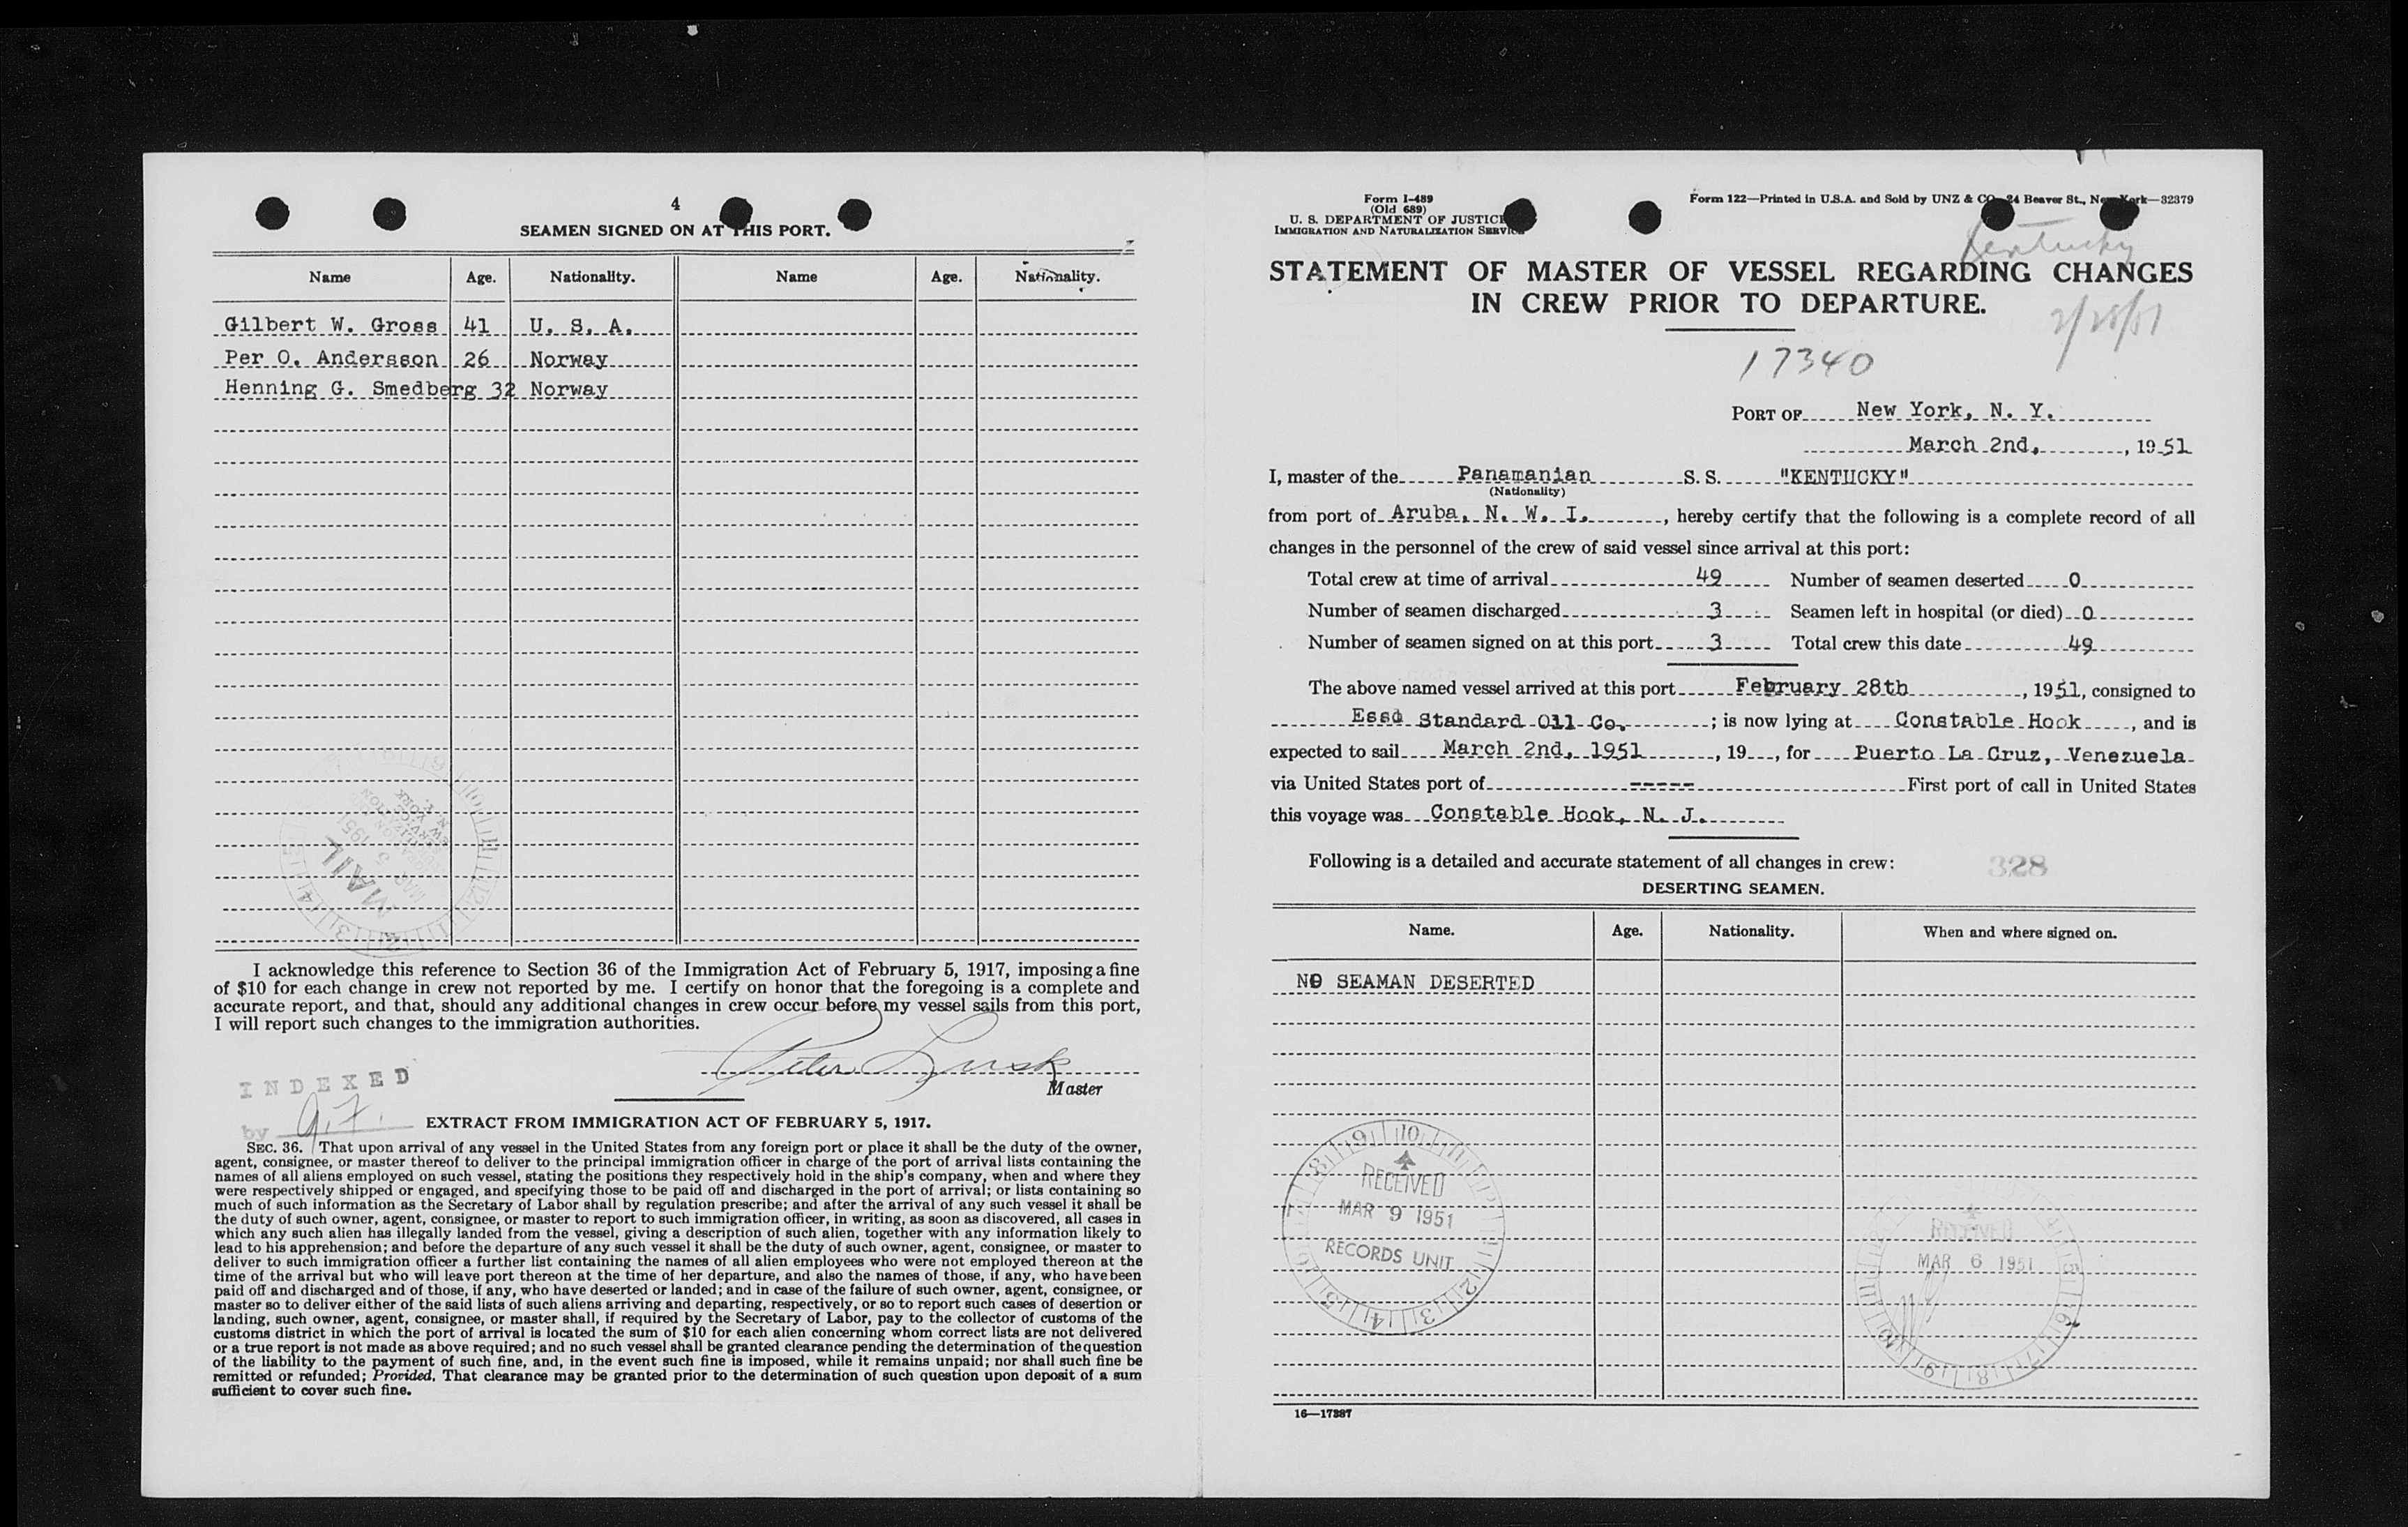 4
SEAMEN SIGNED ON AT THIS PORT.
Name Age. Nationality. Name Age. Nationality.
Gilbert W. Gross 41 U. S. A.
Per O. Andersson 26 Norway
Henning G. Smedberg 32 Norway
MAIL
MAR 5 1951
I acknowledge this reference to Section 36 of the Immigration Act of February 5, 1917, imposing a fine
of $10 for each change in crew not reported by me. I certify on honor that the foregoing is a complete and
accurate report, and that, should any additional changes in crew occur before my vessel sails from this port,
I will report such changes to the immigration authorities.
Master
INDEXED
by
EXTRACT FROM IMMIGRATION ACT OF FEBRUARY 5, 1917.
SEC. 36. That upon arrival of any vessel in the United States from any foreign port or place it shall be the duty of the owner,
agent, consignee, or master thereof to deliver to the principal immigration officer in charge of the port of arrival lists containing the
names of all aliens employed on such vessel, stating the positions they respectively hold in the ship's company, when and where they
were respectively shipped or engaged, and specifying those to be paid off and discharged in the port of arrival; or lists containing so
much of such information as the Secretary of Labor shall by regulation prescribe; and after the arrival of any such vessel it shall be
the duty of such owner, agent, consignee, or master to report to such immigration officer, in writing, as soon as discovered, all cases in
which any such alien has illegally landed from the vessel, giving a description of such alien, together with any information likely to
lead to his apprehension; and before the departure of any such vessel it shall be the duty of such owner, agent, consignee, or master to
deliver to such immigration officer a further list containing the names of all alien employees who were not employed thereon at the
time of the arrival but who will leave port thereon at the time of her departure, and also the names of those, if any, who have been
paid off and discharged and of those, if any, who have deserted or landed; and in case of the failure of such owner, agent, consignee, or
master so to deliver either of the said lists of such aliens arriving and departing, respectively, or so to report such cases of desertion or
landing, such owner, agent, consignee, or master shall, if required by the Secretary of Labor, pay to the collector of customs of the
customs district in which the port of arrival is located the sum of $10 for each alien concerning whom correct lists are not delivered
or a true report is not made as above required; and no such vessel shall be granted clearance pending the determination of the question
of the liability to the payment of such fine, and, in the event such fine is imposed, while it remains unpaid; nor shall such fine be
remitted or refunded; Provided, That clearance may be granted prior to the determination of such question upon deposit of a sum
sufficient to cover such fine.
Form I-489
(Old 689)
U. S. DEPARTMENT OF JUSTICE
IMMIGRATION AND NATURALIZATION SERVICE
Form 122—Printed in U.S.A. and Sold by UNZ & CO., 24 Beaver St., New York—32379
Kentucky
STATEMENT OF MASTER OF VESSEL REGARDING CHANGES
IN CREW PRIOR TO DEPARTURE.
2/28/51
17340
PORT OF New York, N. Y.
March 2nd, , 1951
I, master of the Panamanian S. S. "KENTUCKY"
(Nationality)
from port of Aruba, N. W. I. , hereby certify that the following is a complete record of all
changes in the personnel of the crew of said vessel since arrival at this port:
Total crew at time of arrival 49 Number of seamen deserted 0
Number of seamen discharged 3 Seamen left in hospital (or died) 0
Number of seamen signed on at this port 3 Total crew this date 49
The above named vessel arrived at this port February 28th , 1951, consigned to
Esso Standard Oil Co. ; is now lying at Constable Hook , and is
expected to sail March 2nd, 1951 , 19 , for Puerto La Cruz, Venezuela
via United States port of ----- First port of call in United States
this voyage was Constable Hook, N. J.
Following is a detailed and accurate statement of all changes in crew:
328
DESERTING SEAMEN.
Name. Age. Nationality. When and where signed on.
NO SEAMAN DESERTED
RECEIVED
MAR 9 1951
RECORDS UNIT
RECEIVED
MAR 6 1951
16—17387